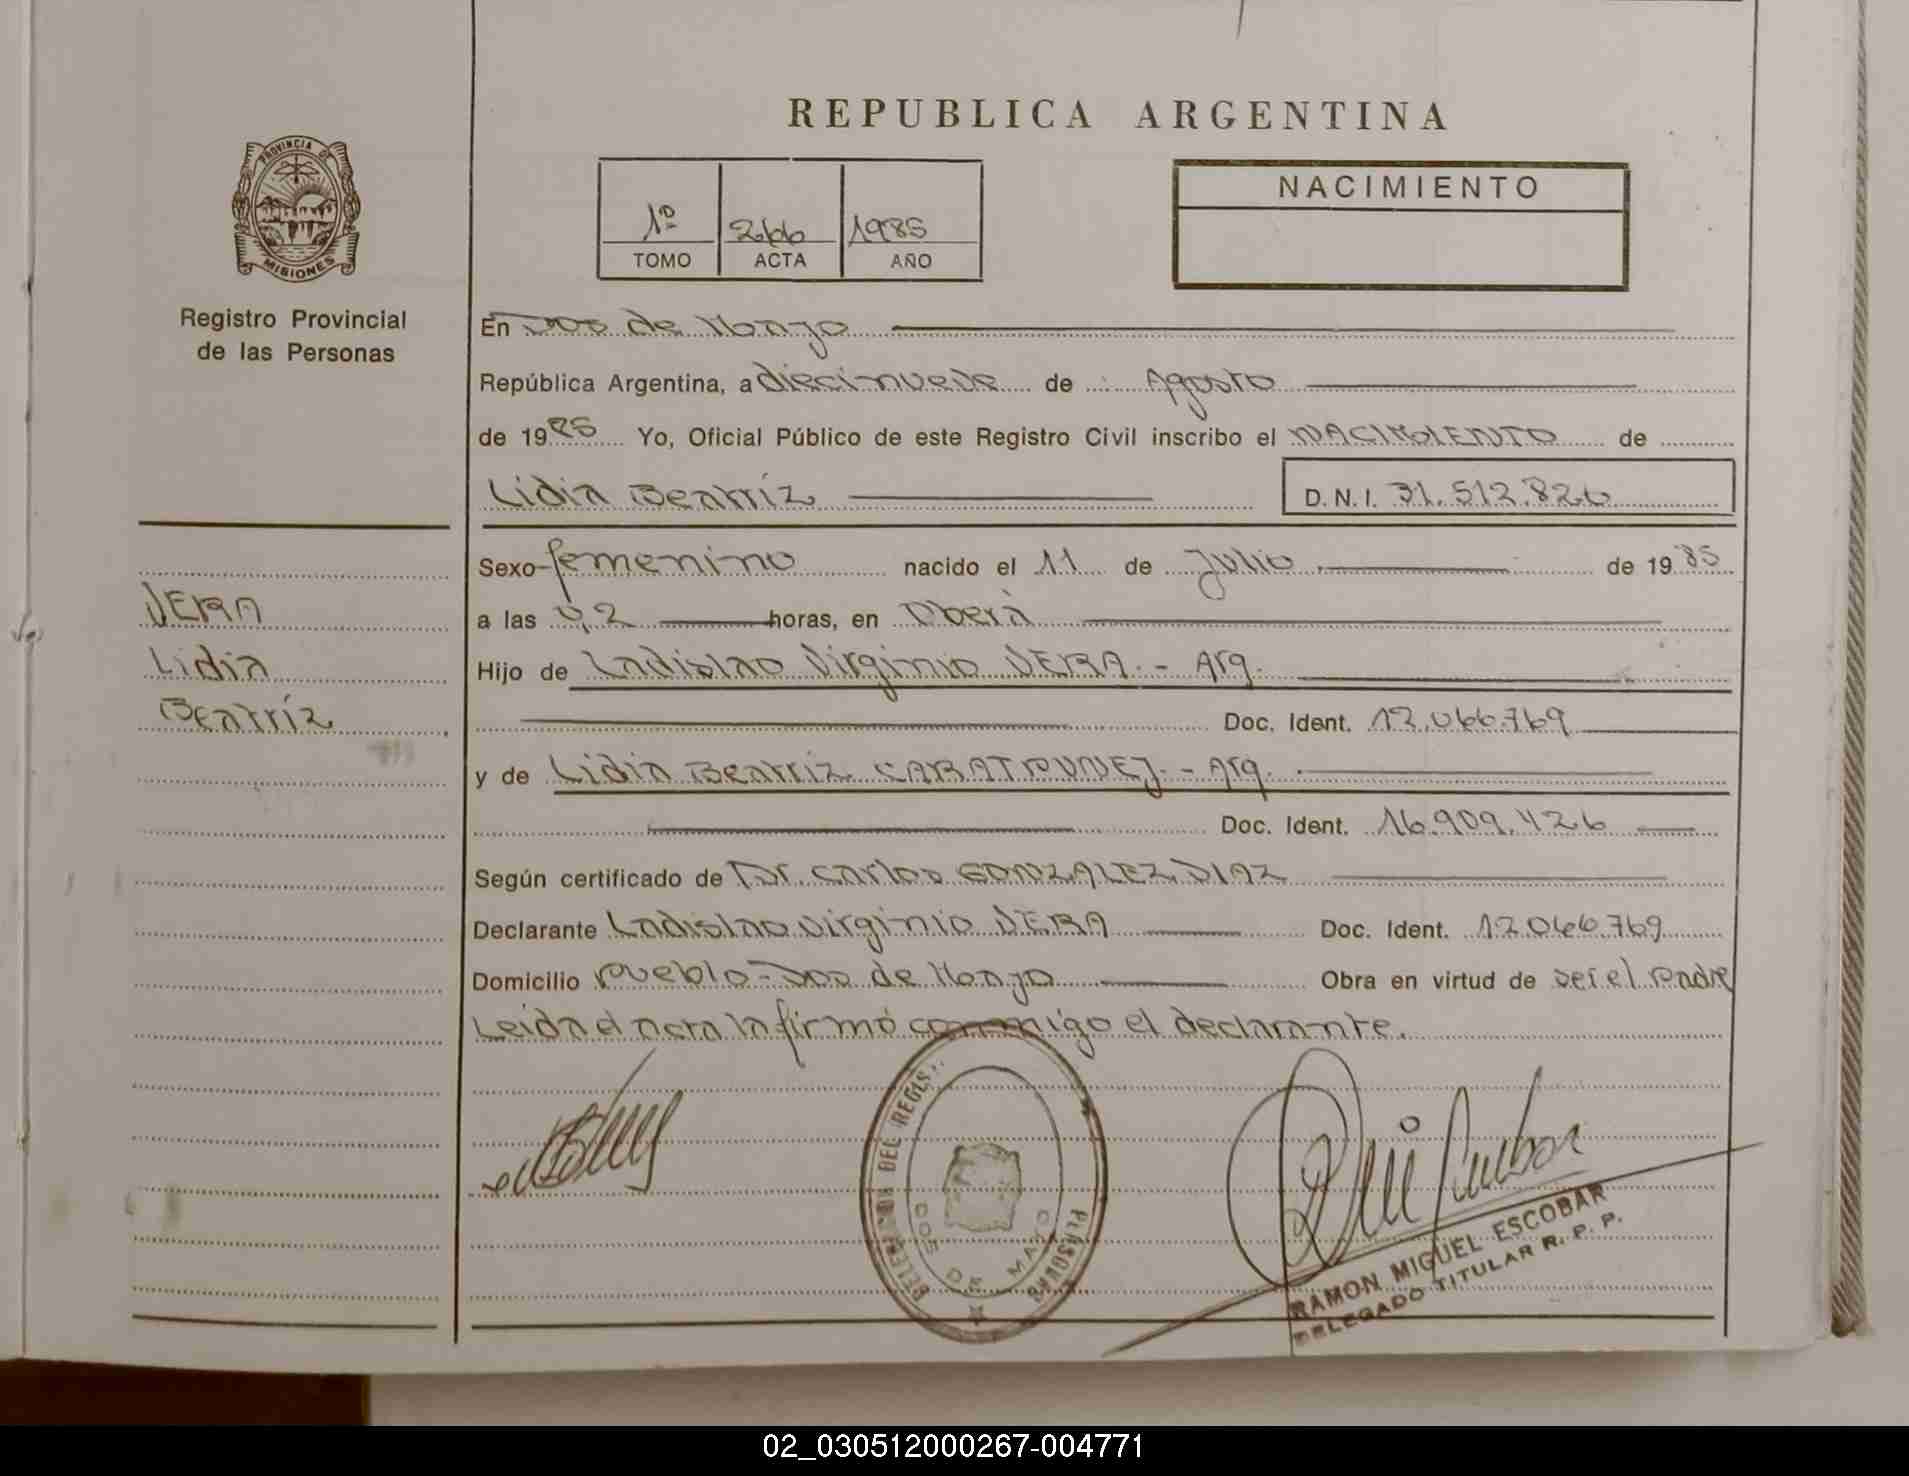 REPUBLICA ARGENTINA
PROVINCIA DE
MISIONES
Registro Provincial
de las Personas
1º 266 1985
TOMO ACTA AÑO
NACIMIENTO
En Dos de Mayo
República Argentina, a diecinueve de Agosto
de 1985 Yo, Oficial Público de este Registro Civil inscribo el NACIMIENTO de
Lidia Beatríz D.N.I. 31.512.826
Sexo femenino nacido el 11 de Julio de 1985
a las 0,2 horas, en Oberá
Hijo de Ladislao Virginio VERA.- Arg.
Doc. Ident. 12.066.769
y de Lidia Beatríz .- Arg.
Doc. Ident. 16.909.426
Según certificado de Dr. Carlos GONZALEZ DIAZ
Declarante Ladislao Virginio VERA Doc. Ident. 12.066.769
Domicilio Pueblo - Dos de Mayo Obra en virtud de ser el Padre
Leida el acta la firmó conmigo el declarante.
VERA
Lidia
Beatríz
DELEGACION DEL REGIS. PERSONAS
DOS DE MAYO
RAMON MIGUEL ESCOBAR
DELEGADO TITULAR R. P. P.
02_030512000267-004771